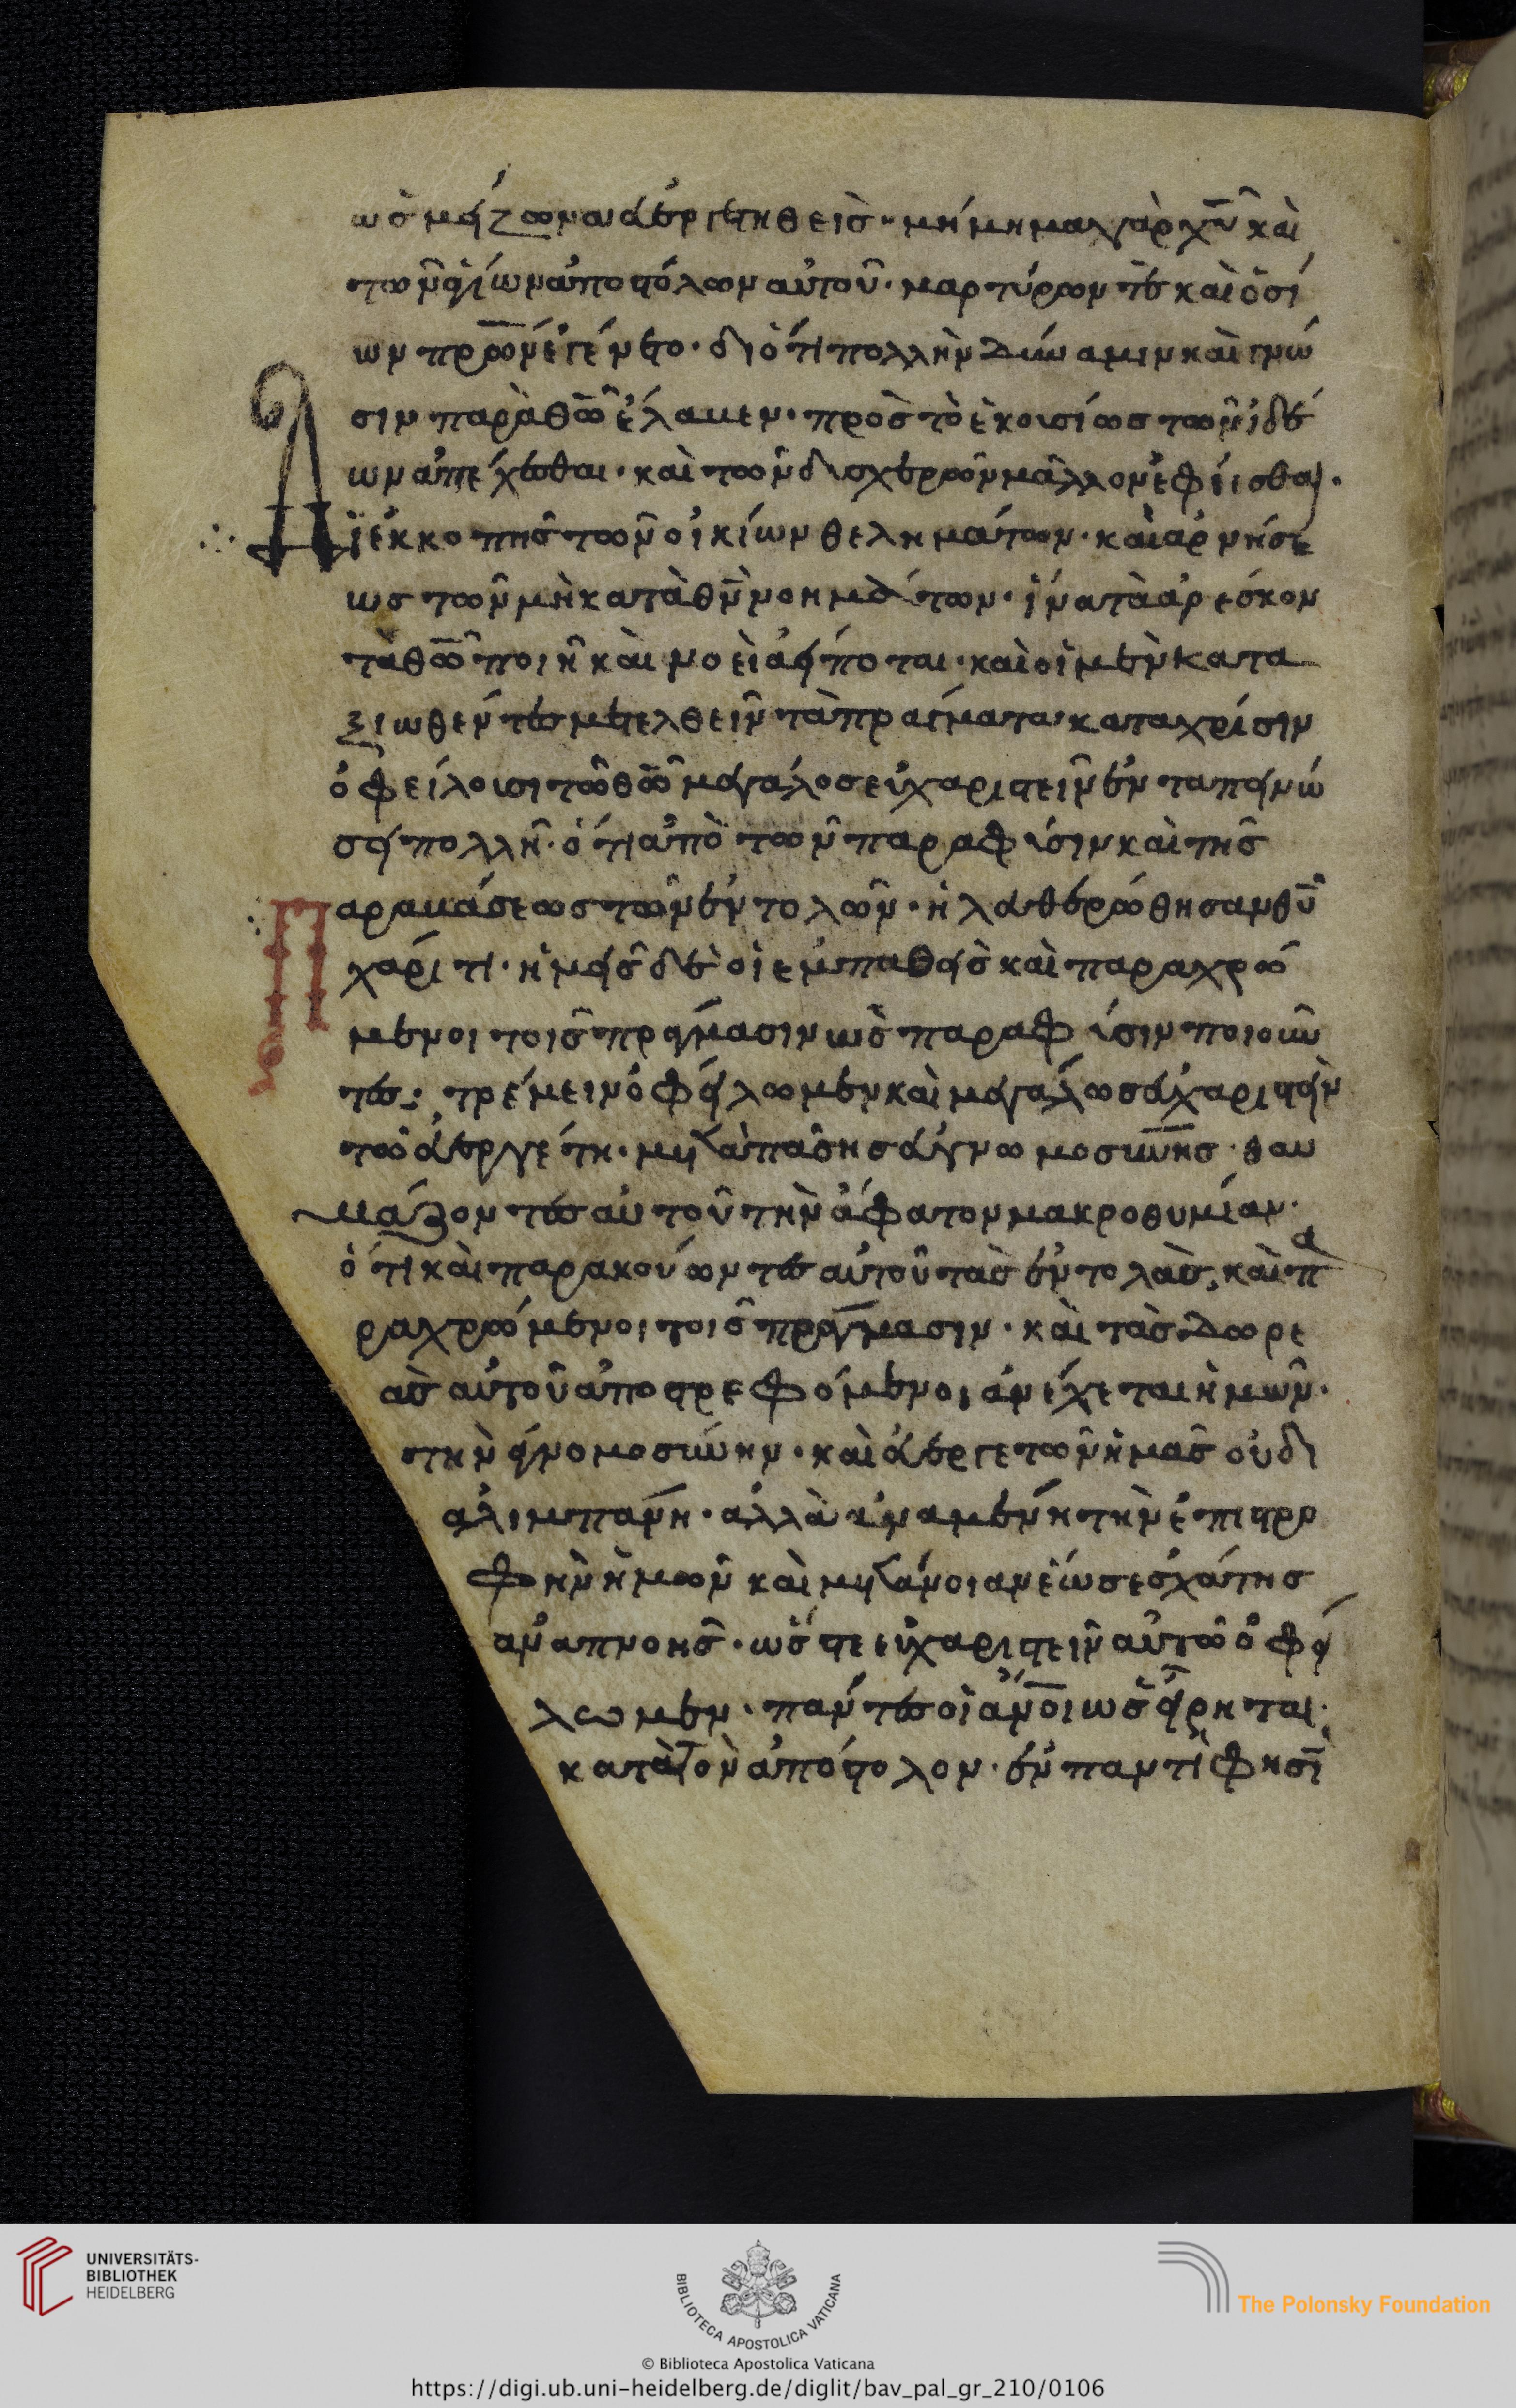 ὡς μείζων εὐεργετηθεὶς· μίμημα γὰρ χῦ καὶ
τῶν ἁγίων ἀποστόλων αὐτοῦ· μαρτύρων τὲ καὶ ὁσί
ων πρᾶον ἐγένετο· διότι πολλὴν δύναμιν καὶ γνῶ
σιν παρὰ θῶ ἔλαβεν· πρὸς τὸ ἑκουσίως τῶν ἡδέ
ων ἀπέχεσθαι· καὶ τῶν δυσχερῶν μᾶλλον ἐφίεσθαι·
Δι ἐκκοπῆς τῶν οἰκίων θελημάτων· καὶ ἀρνήσε
ως τῶν μὴ κατὰ θν νοημάτων· ἵνα τὰ ἀρέσκον
τα θῶ ποιῆ καὶ νοεῖ ἀεὶ ποται· καὶ οἱ μὲν κατα
ξιωθέντες μετελθεῖν τὰ πράγματα κατα χρίσιν
ὀφείλουσι τῶ θῶ μεγάλος εὐχαριστεῖν ἐν ταπεινώ
σει πολλῆ· ὅτι ἀπὸ τῶν παραφύσιν καὶ τῆς
Παραβάσεως τῶν ἐντολῶν· ἠλευθερώθησαν θῦ
χάριτι· ἡμεῖς δὲ οἱ ἐμπαθεῖς καὶ παραχρώ
μενοι τοῖς πράγμασιν ὡς παραφύσιν ποιοῦν
τες· τρέμειν ὀφείλωμεν καὶ μεγάλως εὐχαριστεῖν
τῶ εὐεργέτη· μετὰ πάσης εὐγνωμοσύνης· θαυ
μάζοντες αὐτοῦ τὴν ἄφατον μακροθυμίαν·
ὅτι καὶ παρακούωντες αὐτοῦ τὰς ἐντολὰς, καὶ πα
ραχρώμενοι τοῖς πράγμασιν· καὶ τὰς δωρε
ὰς αὐτοῦ ἀποστρεφόμενοι ἀνέχεται ἡμῶν·
τὴν ἀγνομοσύνην· καὶ εὐεργετῶν ἡμᾶς οὐ δι
αλιμπάνη· ἀλλὰ ἀναμένη τὴν ἐπιστρο
φὴν ἡμῶν καὶ μετάνοιαν ἕως ἐσχάτης
ἀναπνοῆς· ὥστε εὐχαριστεῖν αὐτῶ ὀφεί
λωμεν· πάντες οἱ ἄνοι ὡς εἴρηται·
κατὰ τὸν ἀπόστολον· ἐν παντὶ φησὶ
UNIVERSITÄTS-
BIBLIOTHEK
HEIDELBERG
BIBLIOTECA APOSTOLICA VATICANA
The Polonsky Foundation
© Biblioteca Apostolica Vaticana
https://digi.ub.uni-heidelberg.de/diglit/bav_pal_gr_210/0106